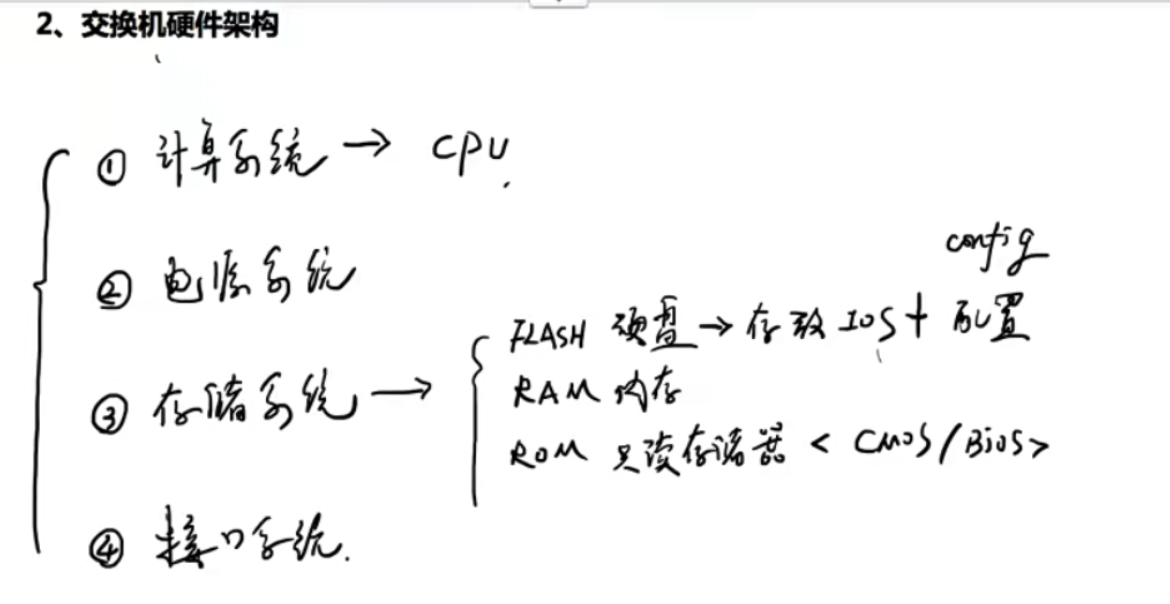 2、交换机硬件架构
① 计算系统 → CPU
② 电源系统
config
FLASH 硬盘 → 存放 IOS + 配置
③ 存储系统 →
RAM 内存
ROM 只读存储器 < CMOS/BiOS>
④ 接口系统.